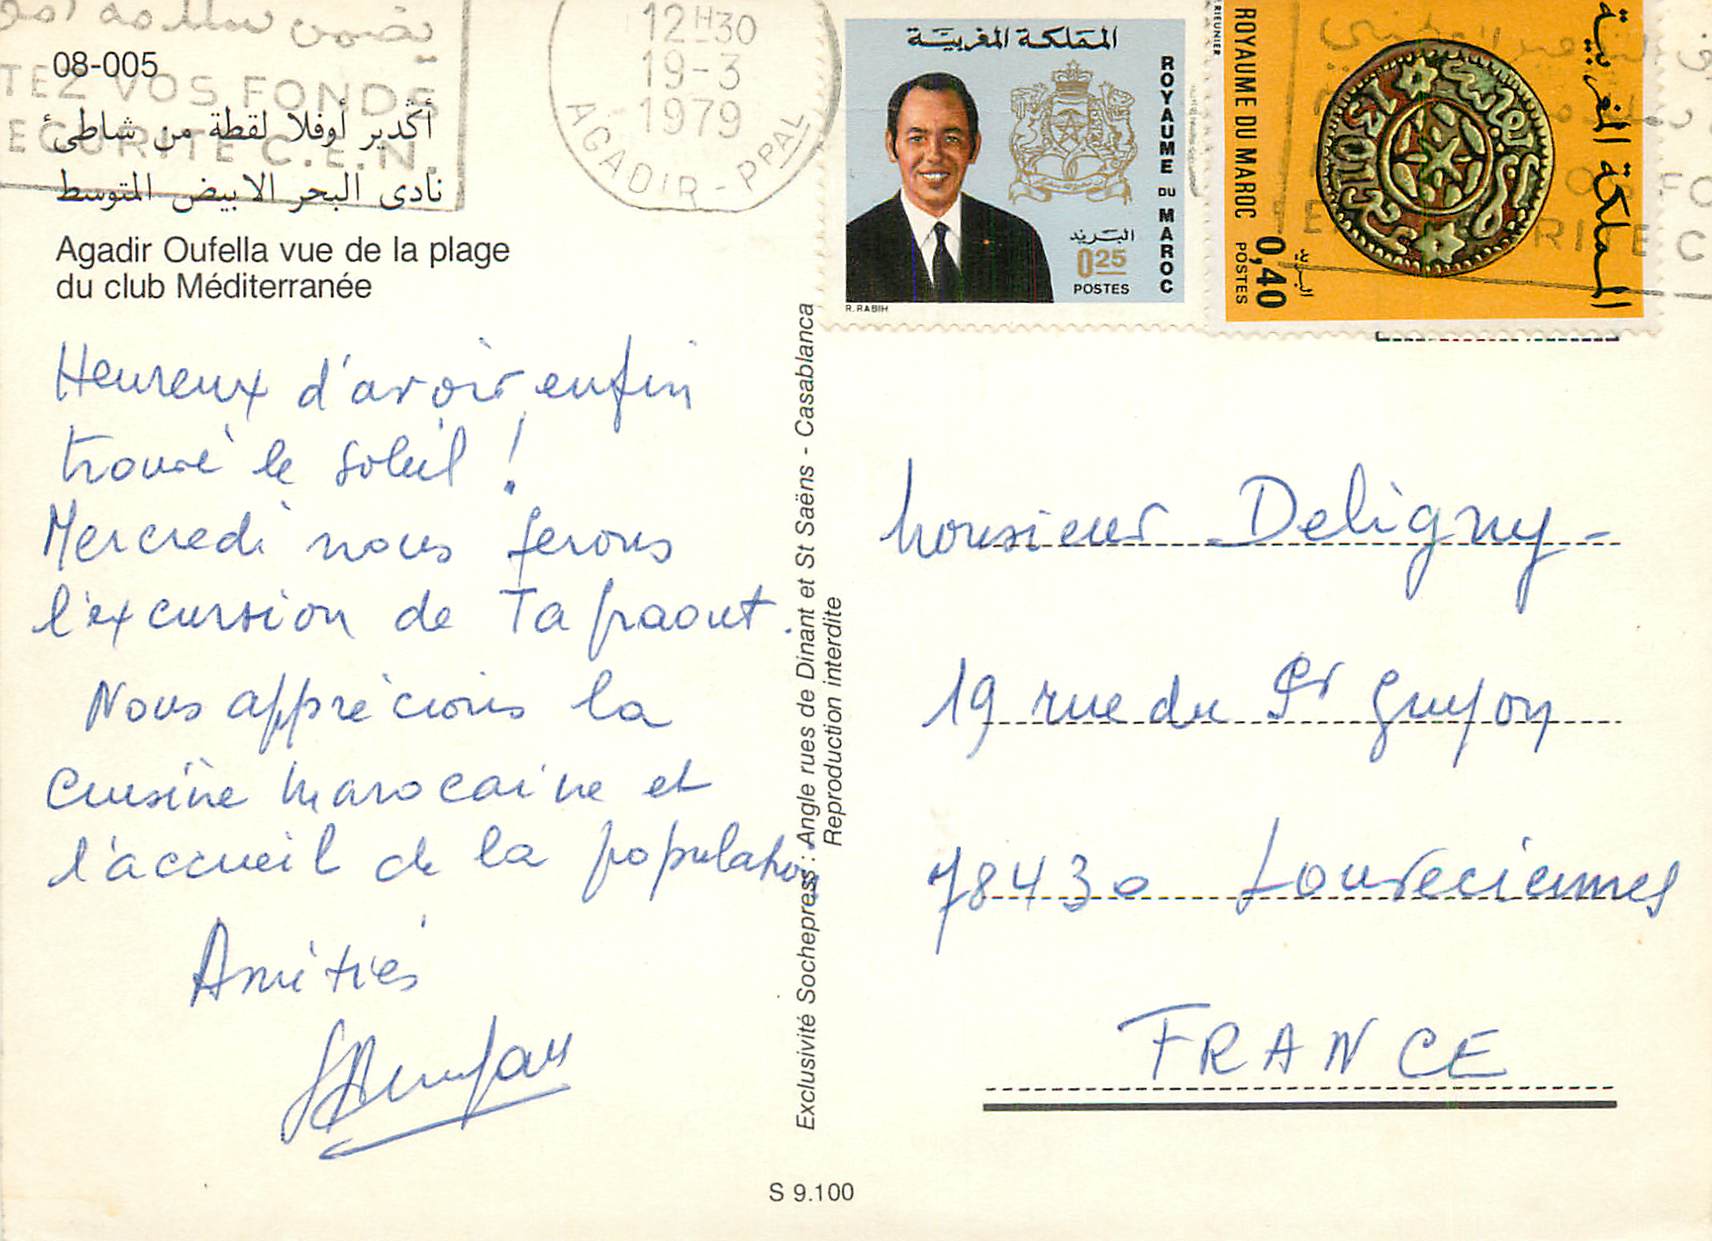 08-005
أگدير أوفلا لقطة من شاطئ
نادى البحر الابيض المتوسط
Agadir Oufella vue de la plage
du club Méditerranée
Heureux d'avoir enfin
trouvé le soleil !
Mercredi nous ferons
l'excursion de Tafraout.
Nous apprécions la
cuisine marocaine et
l'accueil de la population
Amitiés
Exclusivité Sochepress : Angle rues de Dinant et St Saëns - Casablanca
Reproduction interdite
S 9.100
TEZ VOS FONDS
ECURITE C.E.N.
12H30
19-3
1979
AGADIR-PPAL
المملكة المغربية
ROYAUME DU MAROC
البريد
0.25
POSTES
R.RABIH
المملكة المغربية
ROYAUME DU MAROC
البريد
0,40
POSTES
Monsieur Deligny-
19 rue du Pr Guyon
78430 Louveciennes
FRANCE